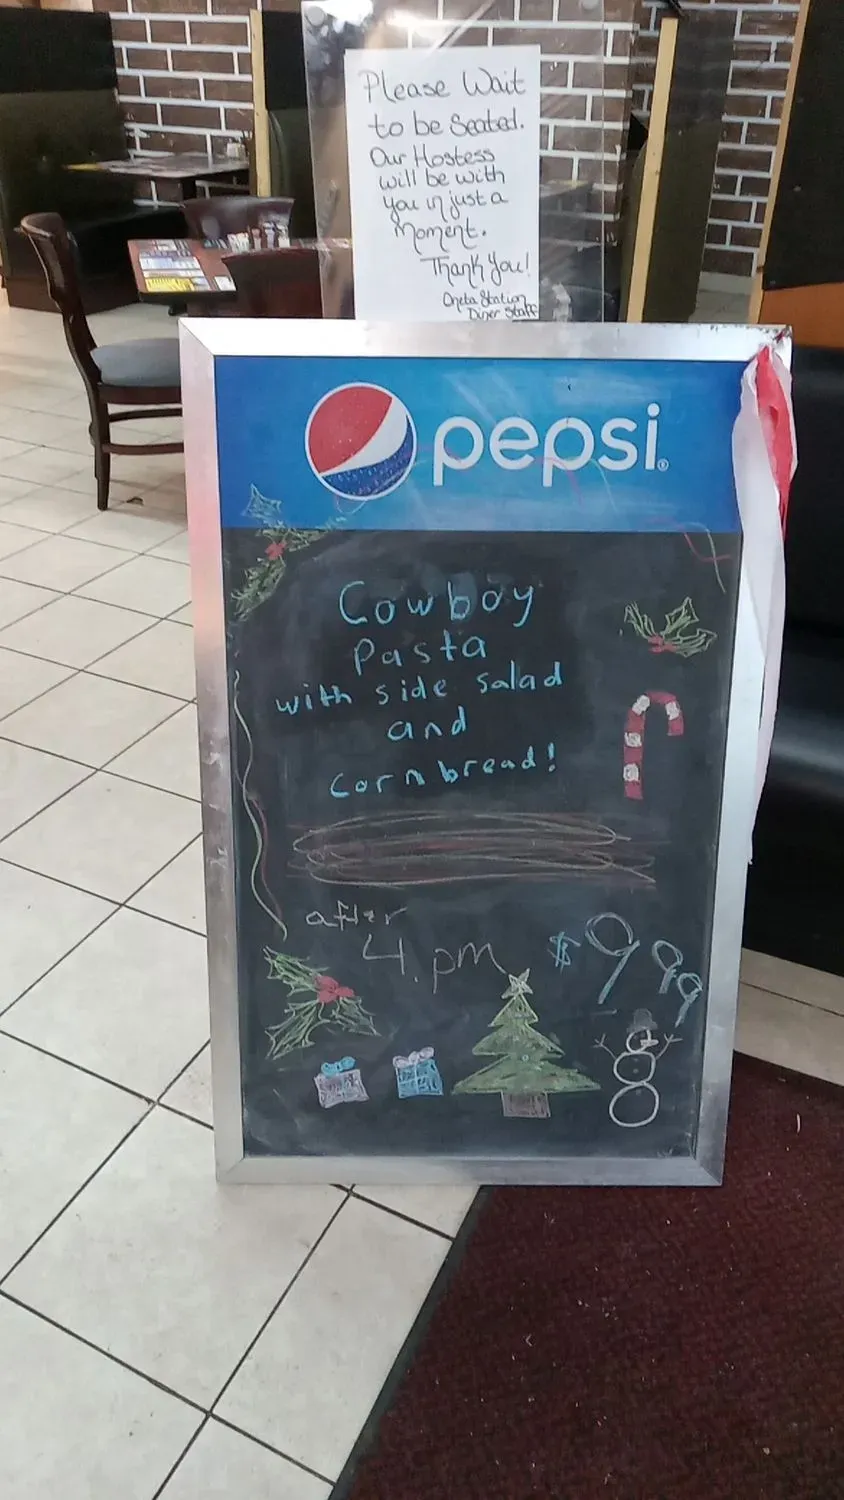 Please Wait
to be Seated.
Our Hostess
will be with
you in just a
moment.
Thank you!
Oneta Station
Diner Staff
pepsi
Cowboy
Pasta
with side salad
and
Cornbread!
after
4. pm
$999